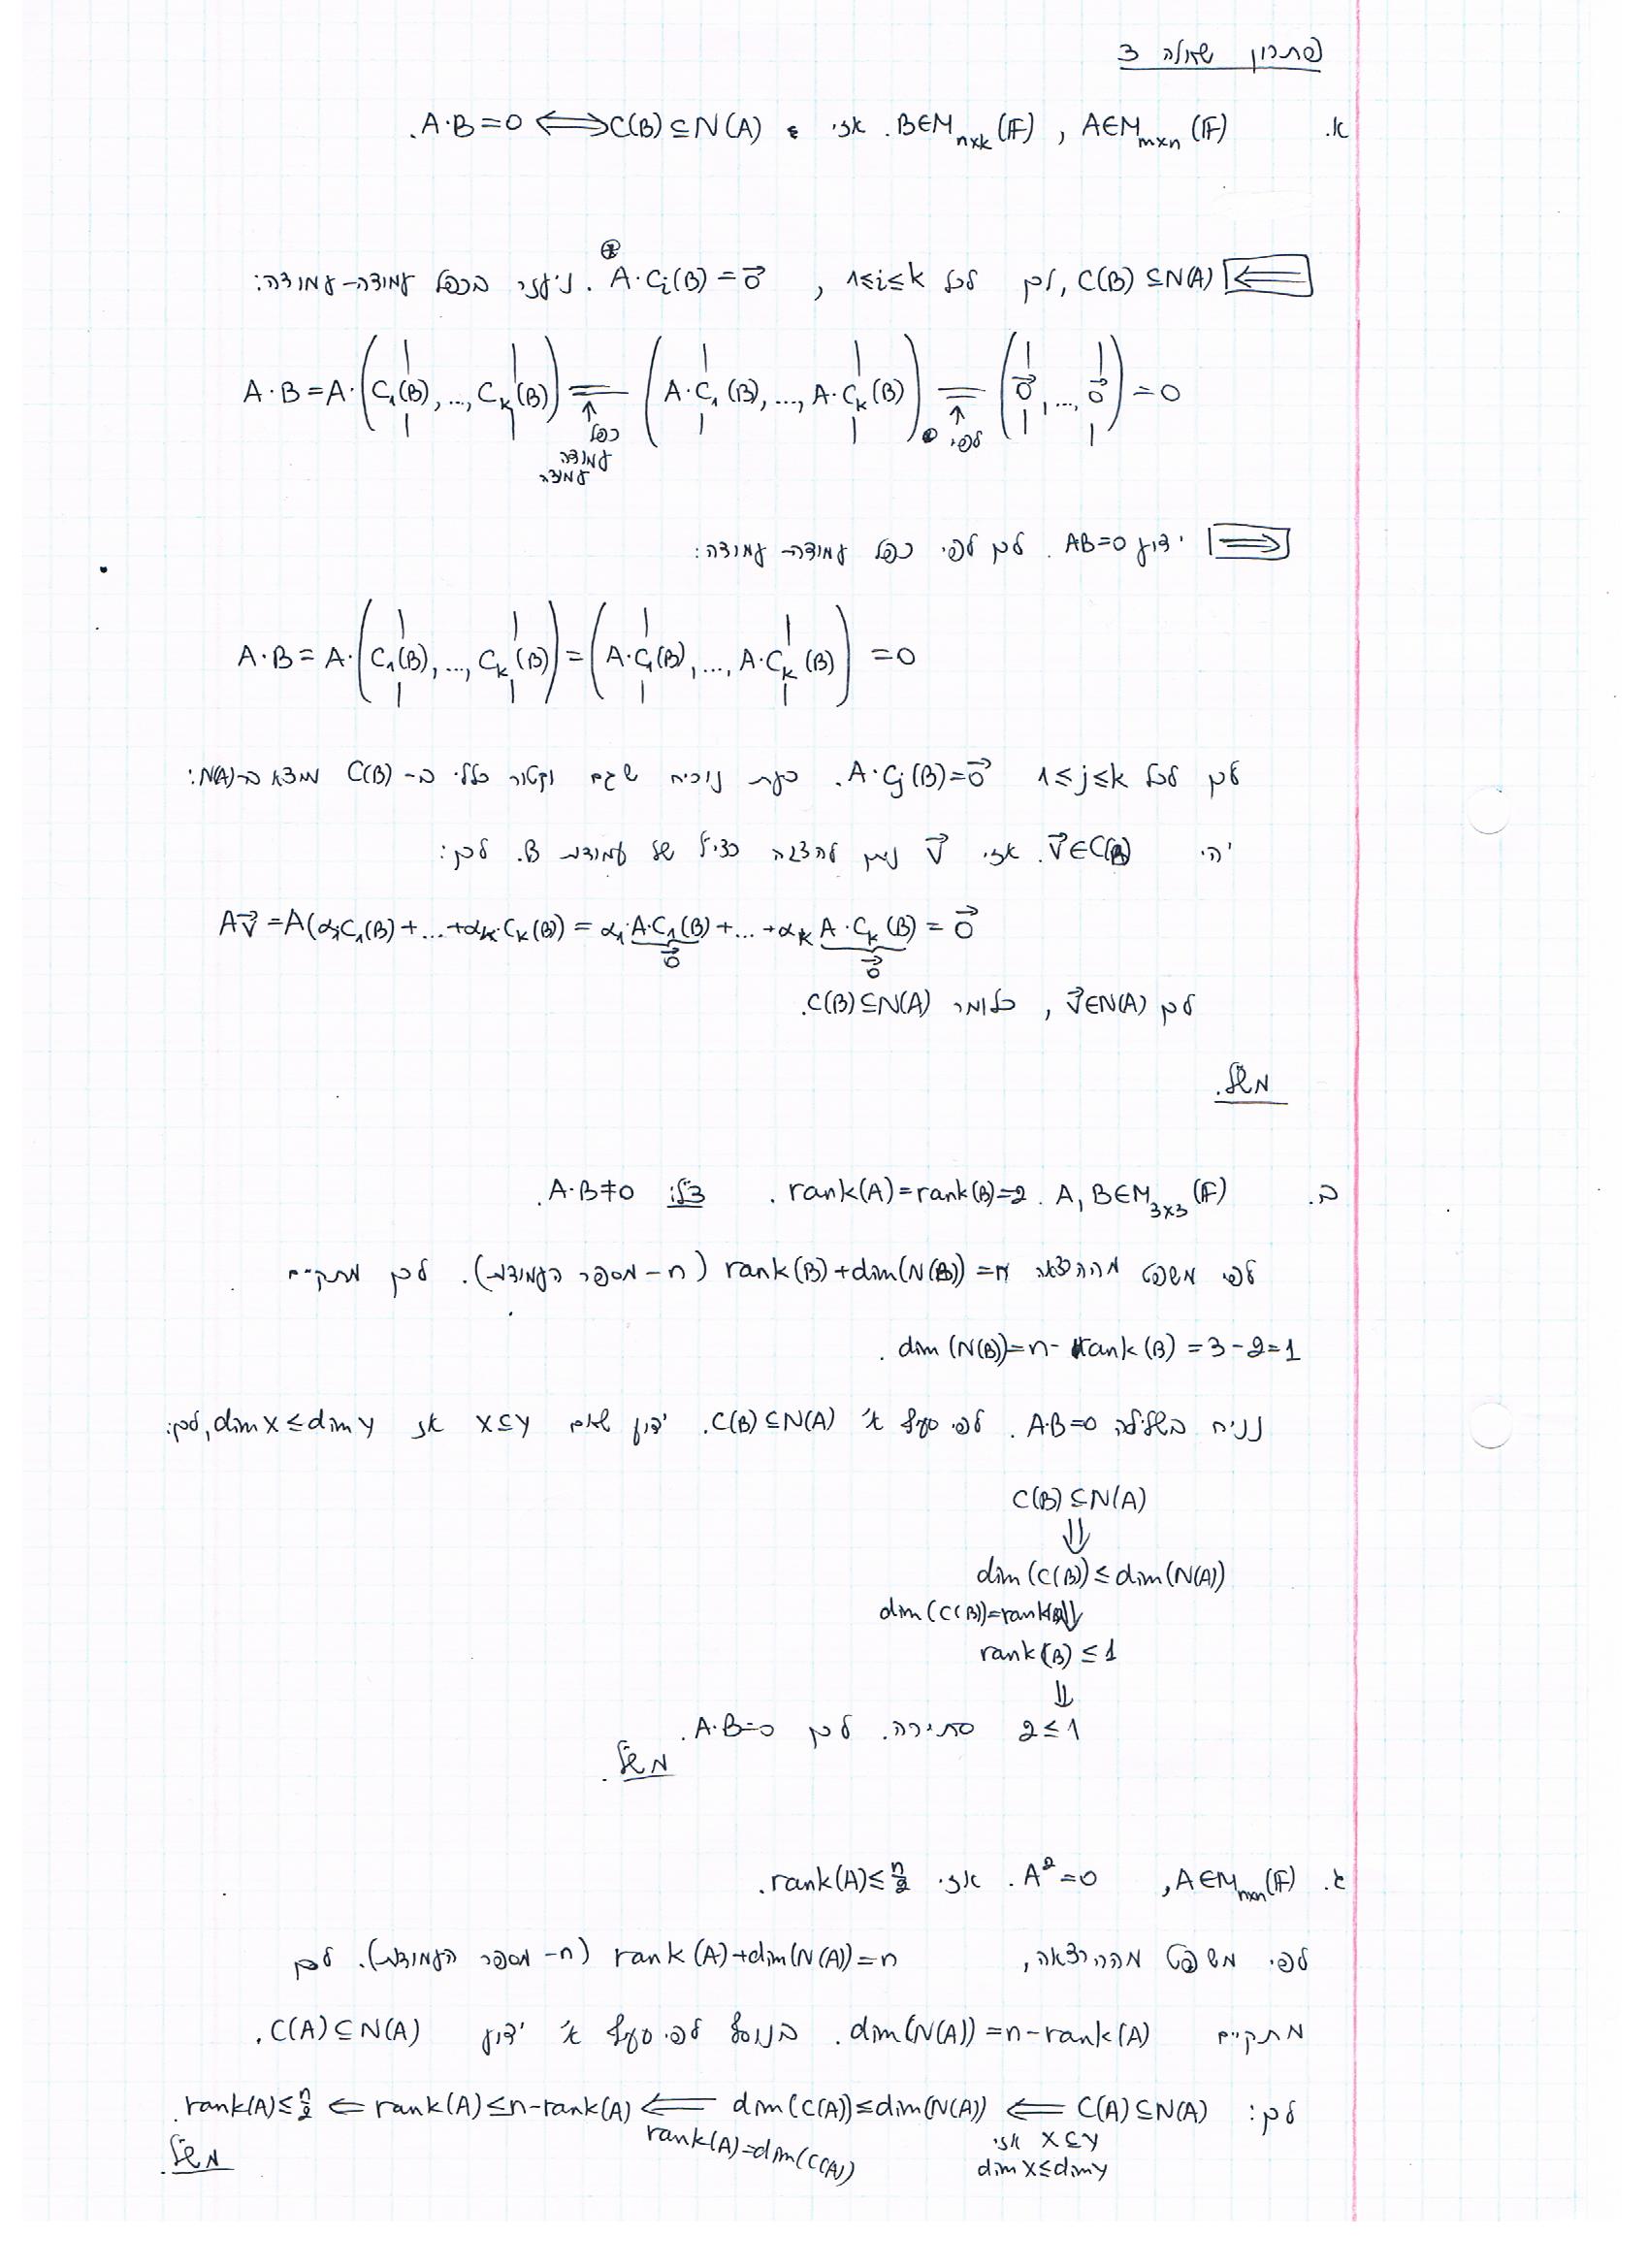 פתרון שאלה 3
א. A∈M_{m×n}(F) , B∈M_{n×k}(F). אזי C(B)⊆N(A) ⟺ A·B=0.
⟸ C(B)⊆N(A), לכן לכל 1≤i≤k , A·C_i(B)=0⃗ ⊛. ניעזר בכפל עמודה-עמודה:
A·B=A·(C_1(B),...,C_k(B)) = (A·C_1(B),...,A·C_k(B)) = (0⃗,...,0⃗) =0
↑ ↑
כפל לפי
עמודה
עמודה
⟹ ידוע AB=0. לכן לפי כפל עמודה-עמודה:
A·B=A·(C_1(B),...,C_k(B)) = (A·C_1(B),...,A·C_k(B)) =0
לכן לכל 1≤j≤k A·C_j(B)=0⃗. כעת נוכיח שגם וקטור כללי ב-C(B) נמצא ב-N(A):
יהי v⃗∈C(B). אזי v⃗ ניתן להצגה כצ"ל של עמודות B. לכן:
Av⃗=A(α_1C_1(B)+...+α_k·C_k(B))=α_1·A·C_1(B)+...+α_k A·C_k(B)=0⃗
0⃗ 0⃗
לכן v⃗∈N(A) , כלומר C(B)⊆N(A).
מש"ל.
ב. A,B∈M_{3×3}(F). rank(A)=rank(B)=2. צ"ל: A·B≠0.
לפי משפט מההרצאה rank(B)+dim(N(B))=n (n-מספר העמודות). לכן מתקיים
dim(N(B))=n-rank(B)=3-2=1.
נניח בשלילה A·B=0. לפי סעיף א' C(B)⊆N(A). ידוע שאם X⊆Y אז dimX≤dimY, לכן:
C(B)⊆N(A)
⇓
dim(C(B))≤dim(N(A))
dim(C(B))=rank(B) ⇓
rank(B)≤1
⇓
2≤1 סתירה. לכן A·B=0.
מש"ל.
ג. A∈M_{n×n}(F), A²=0. אזי rank(A)≤n/2.
לפי משפט מההרצאה, rank(A)+dim(N(A))=n (n-מספר העמודות). לכן
מתקיים dim(N(A))=n-rank(A). בנוסף לפי סעיף א' ידוע C(A)⊆N(A).
לכן: C(A)⊆N(A) ⟸ dim(C(A))≤dim(N(A)) ⟸ rank(A)≤n-rank(A) ⟸ rank(A)≤n/2.
X⊆Y אזי rank(A)=dim(C(A))
dimX≤dimY
מש"ל